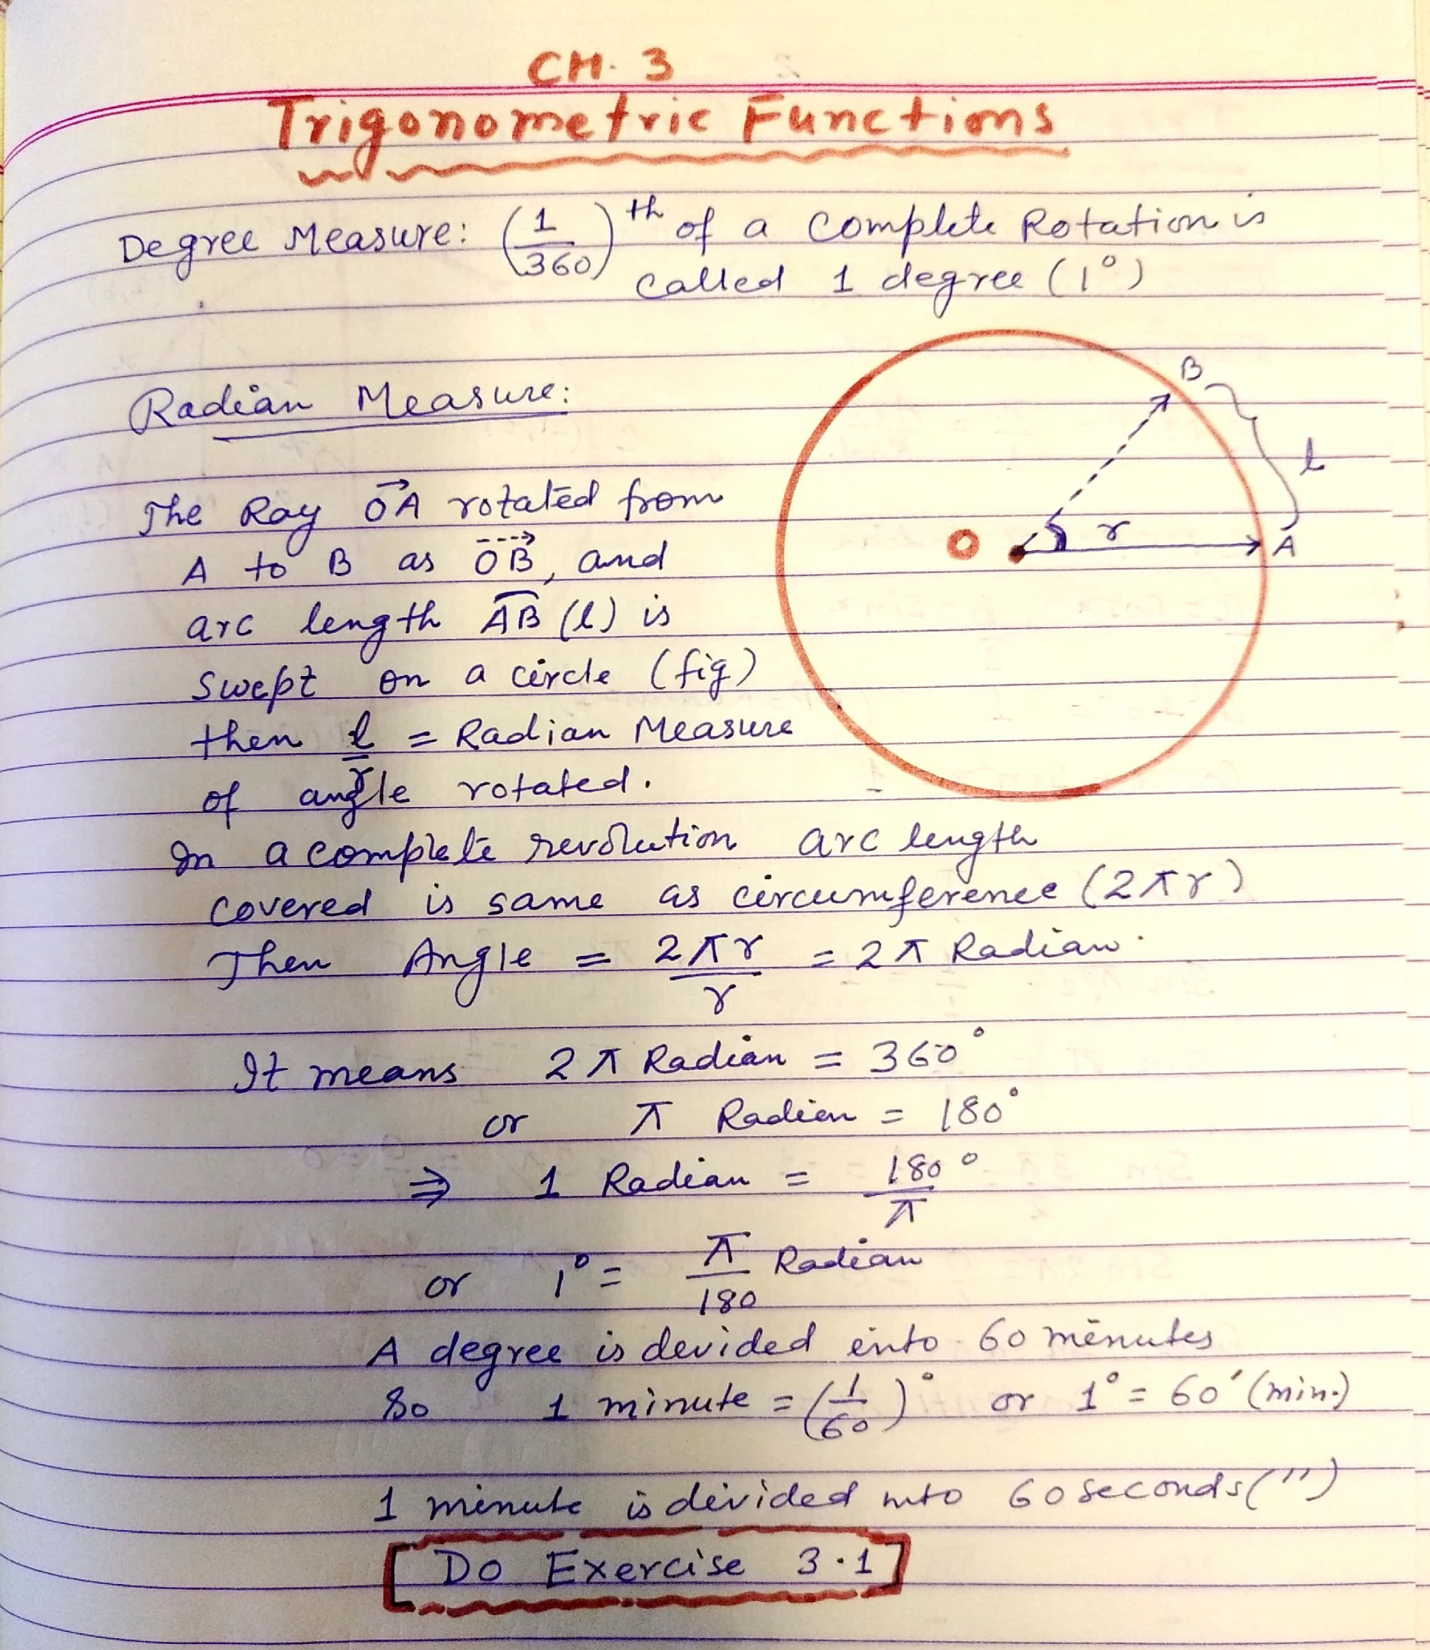 CH. 3
Trigonometric Functions
Degree Measure: (1/360)th of a Complete Rotation is
called 1 degree (1°)
Radian Measure:
B
l
O r A
The Ray OA rotated from
A to B as OB, and
arc length AB (l) is
swept on a circle (fig)
then l/r = Radian Measure
of angle rotated.
In a complete revolution arc length
covered is same as circumference (2πr)
Then Angle = 2πr/r = 2π Radian.
It means 2π Radian = 360°
or π Radian = 180°
⇒ 1 Radian = 180°/π
or 1° = π/180 Radian
A degree is devided into 60 minutes
So 1 minute = (1/60)° or 1° = 60' (min.)
1 minute is devided into 60 seconds ('')
[Do Exercise 3.1]